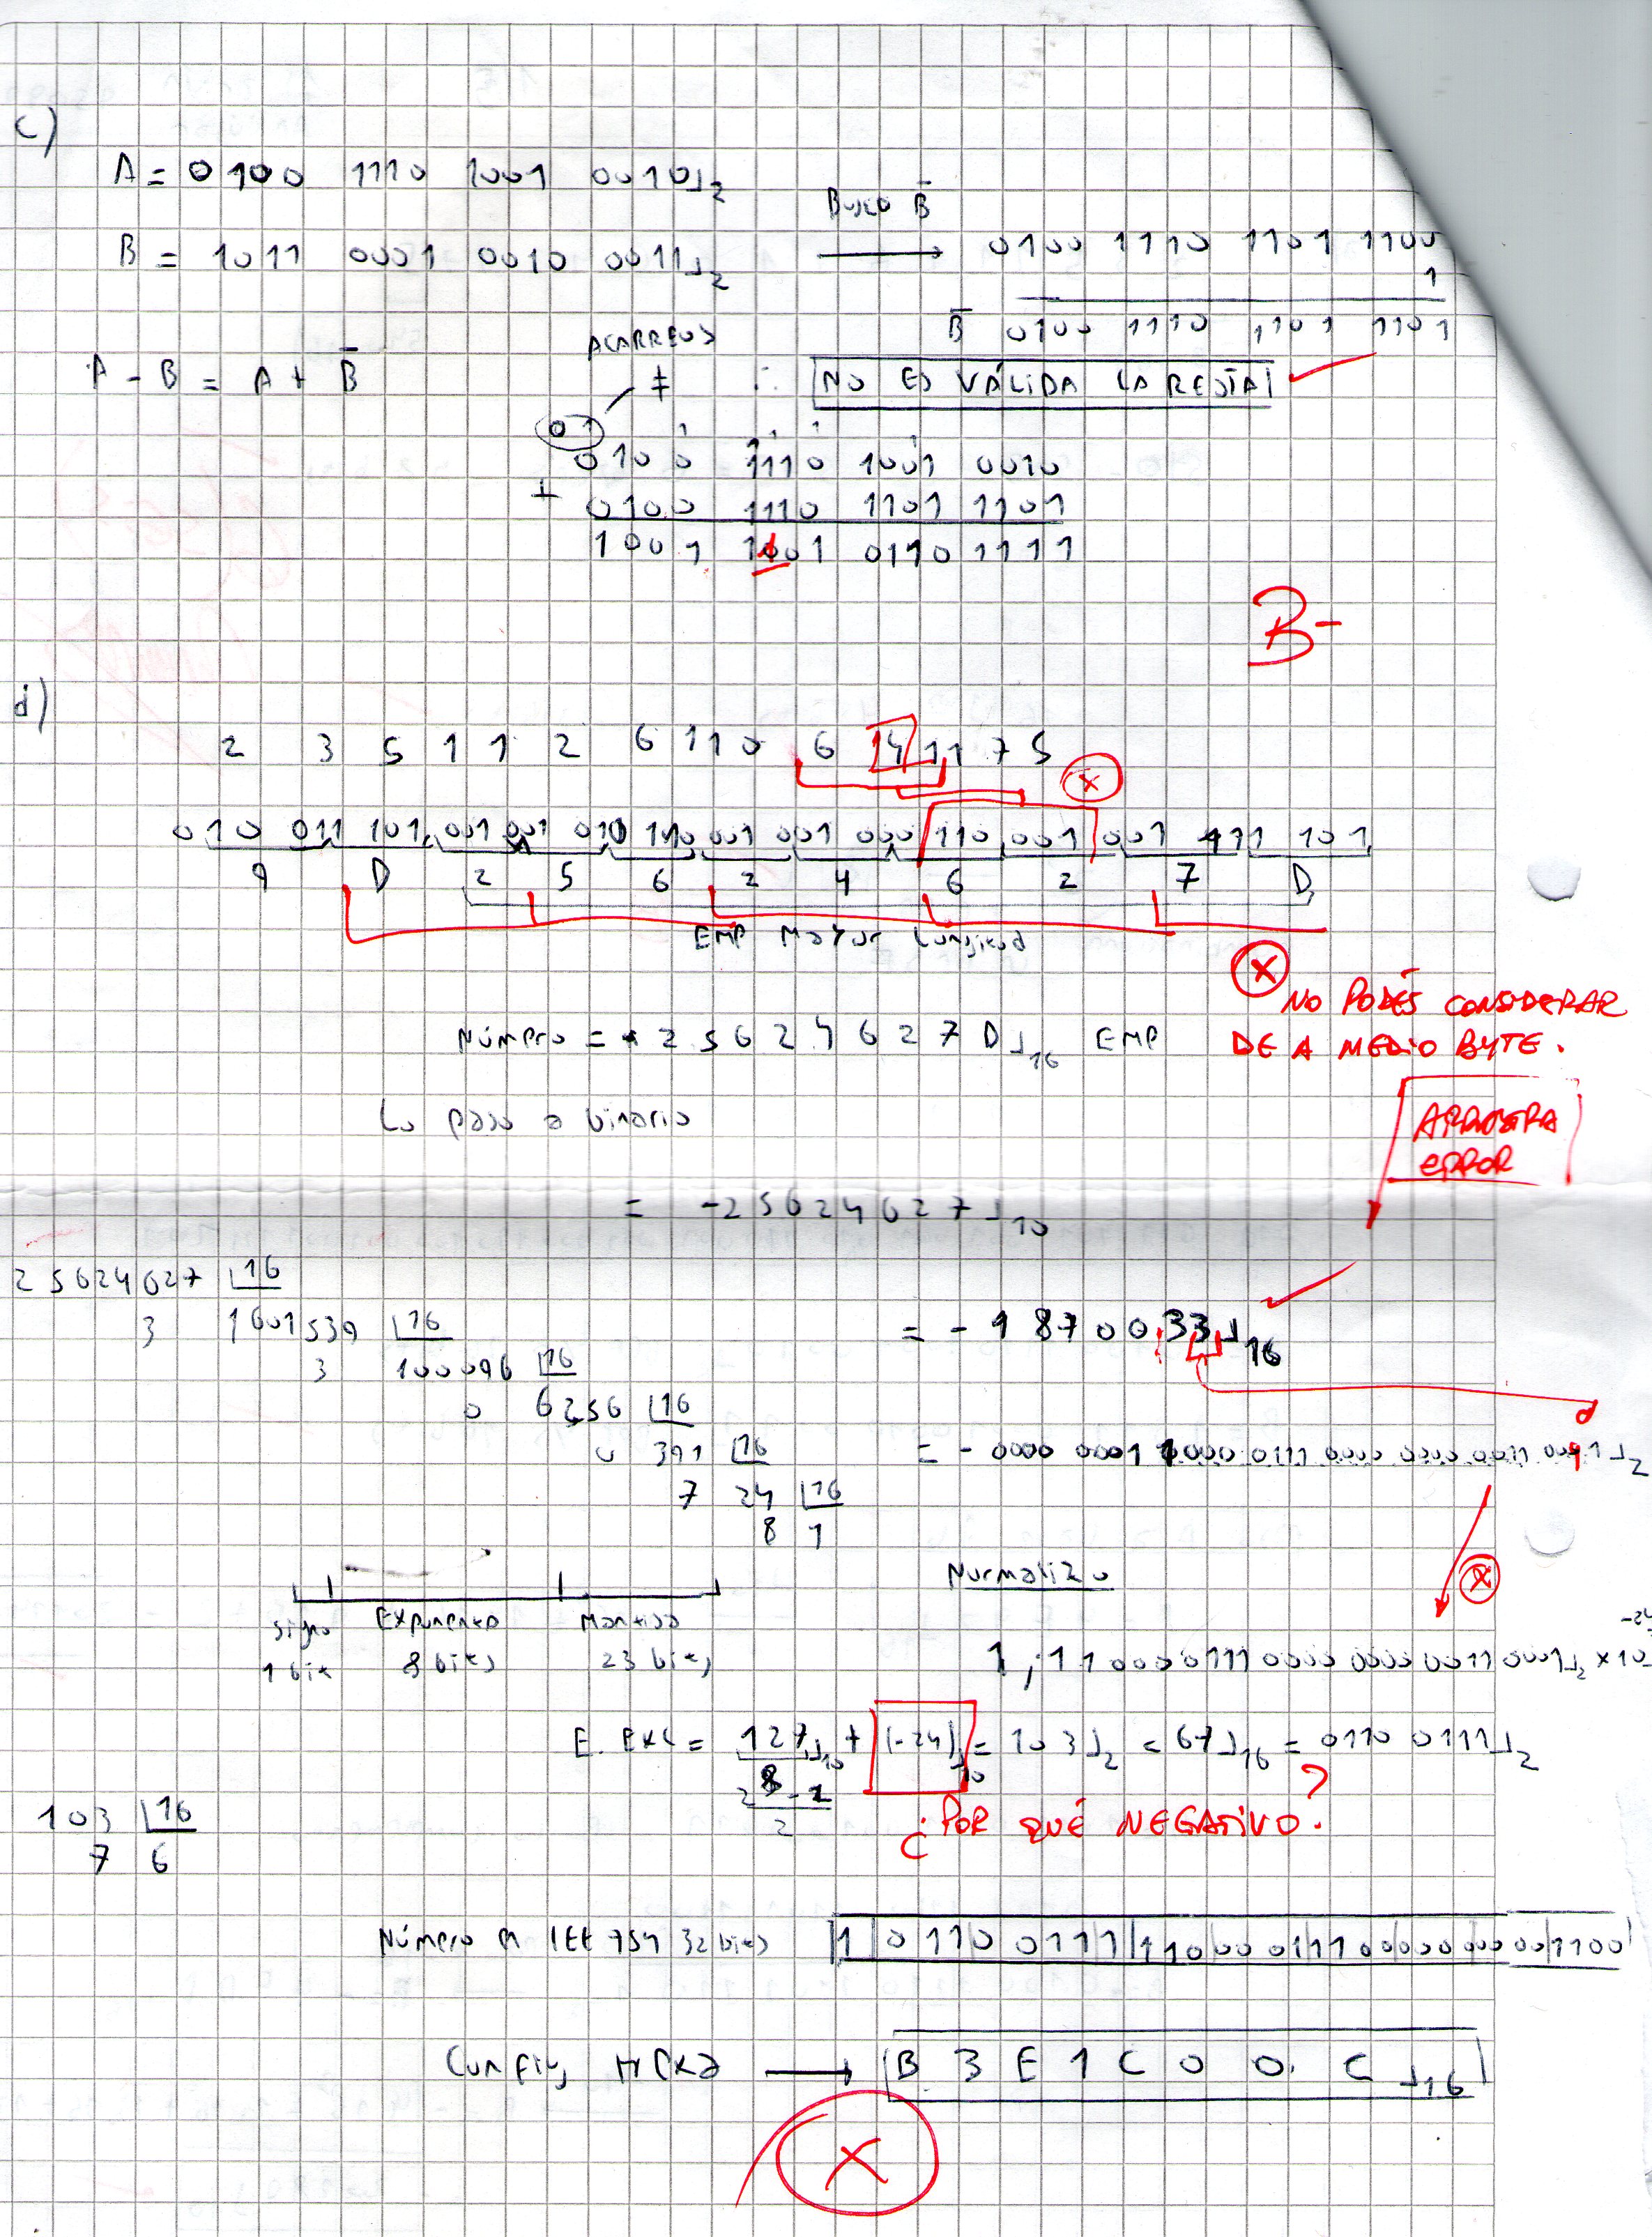 c)
A = 0100 1110 1001 0010⌟2
Busco B̄
B = 1011 0001 0010 0011⌟2 → 0100 1110 1101 1100
1
B̄ 0100 1110 1101 1101
ACARREOS
A - B = A + B̄ ≠ ∴ NO ES VÁLIDA LA RESTA
01
0100 1110 1001 0010
+ 0100 1110 1101 1101
1001 1101 0110 1111
B-
d)
2 3 5 1 1 2 6 1 1 0 6 1 4 1 1 7 5
X
010 011 101 001 001 010 110 001 001 000 110 001 001 111 101
9 D 2 5 6 2 4 6 2 7 D
EMP Mayor Longitud
X NO PODÉS CONSIDERAR
DE A MEDIO BYTE.
Número = 2 5 6 2 4 6 2 7 D⌟16 EMP
Lo paso a binario
ARRASTRA
ERROR
= -25624627⌟10
25624627 16
3 1601539 16
= - 1870033⌟16
3 100096 16
0 6256 16
0 391 16
= - 0000 0001 1000 0111 0000 0000 0011 0011⌟2
7 24 16
8 1
Normalizo
X
signo Exponente Mantisa
1 bit 8 bits 23 bits
1,110000111000000000110001⌟2 x 10 -24
E. Exc = 127⌟10 + (-24)⌟10 = 103⌟2 = 67⌟16 = 0110 0111⌟2
2 8 - 2
2
¿POR QUÉ NEGATIVO?
103 16
7 6
Número en IEE 754 32 bits 1 0110 0111 11000011100000000001100
Config Hexa → B 3 E 1 C 0 0 C⌟16
X